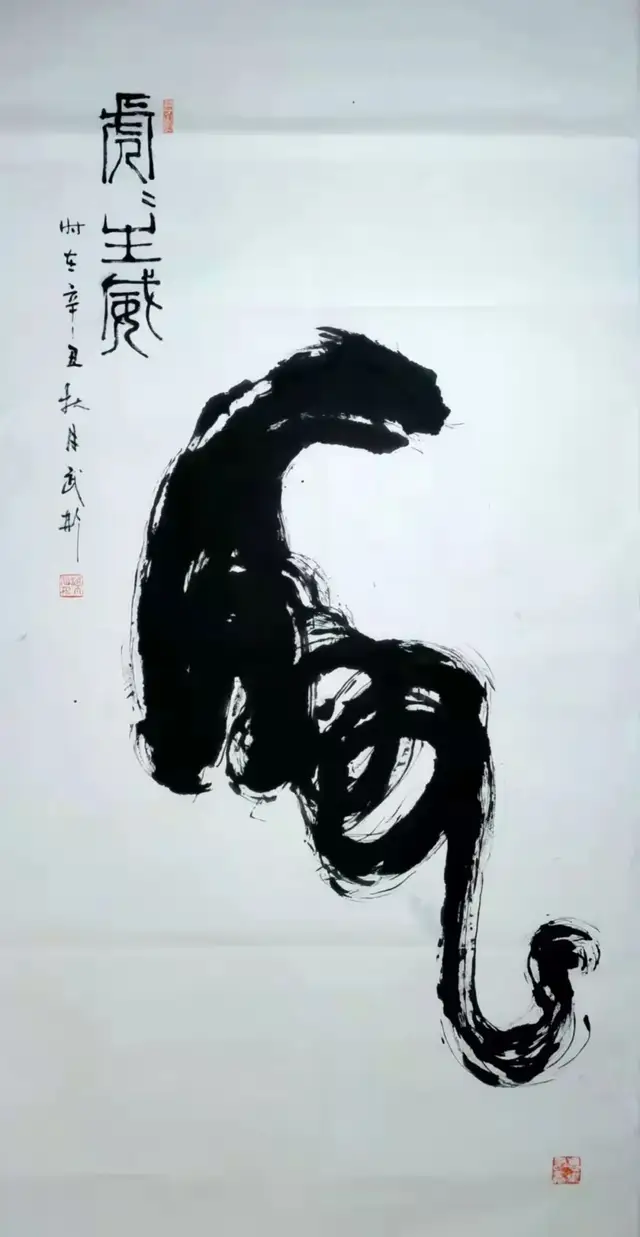 虎〻生威
时在辛丑秋月武